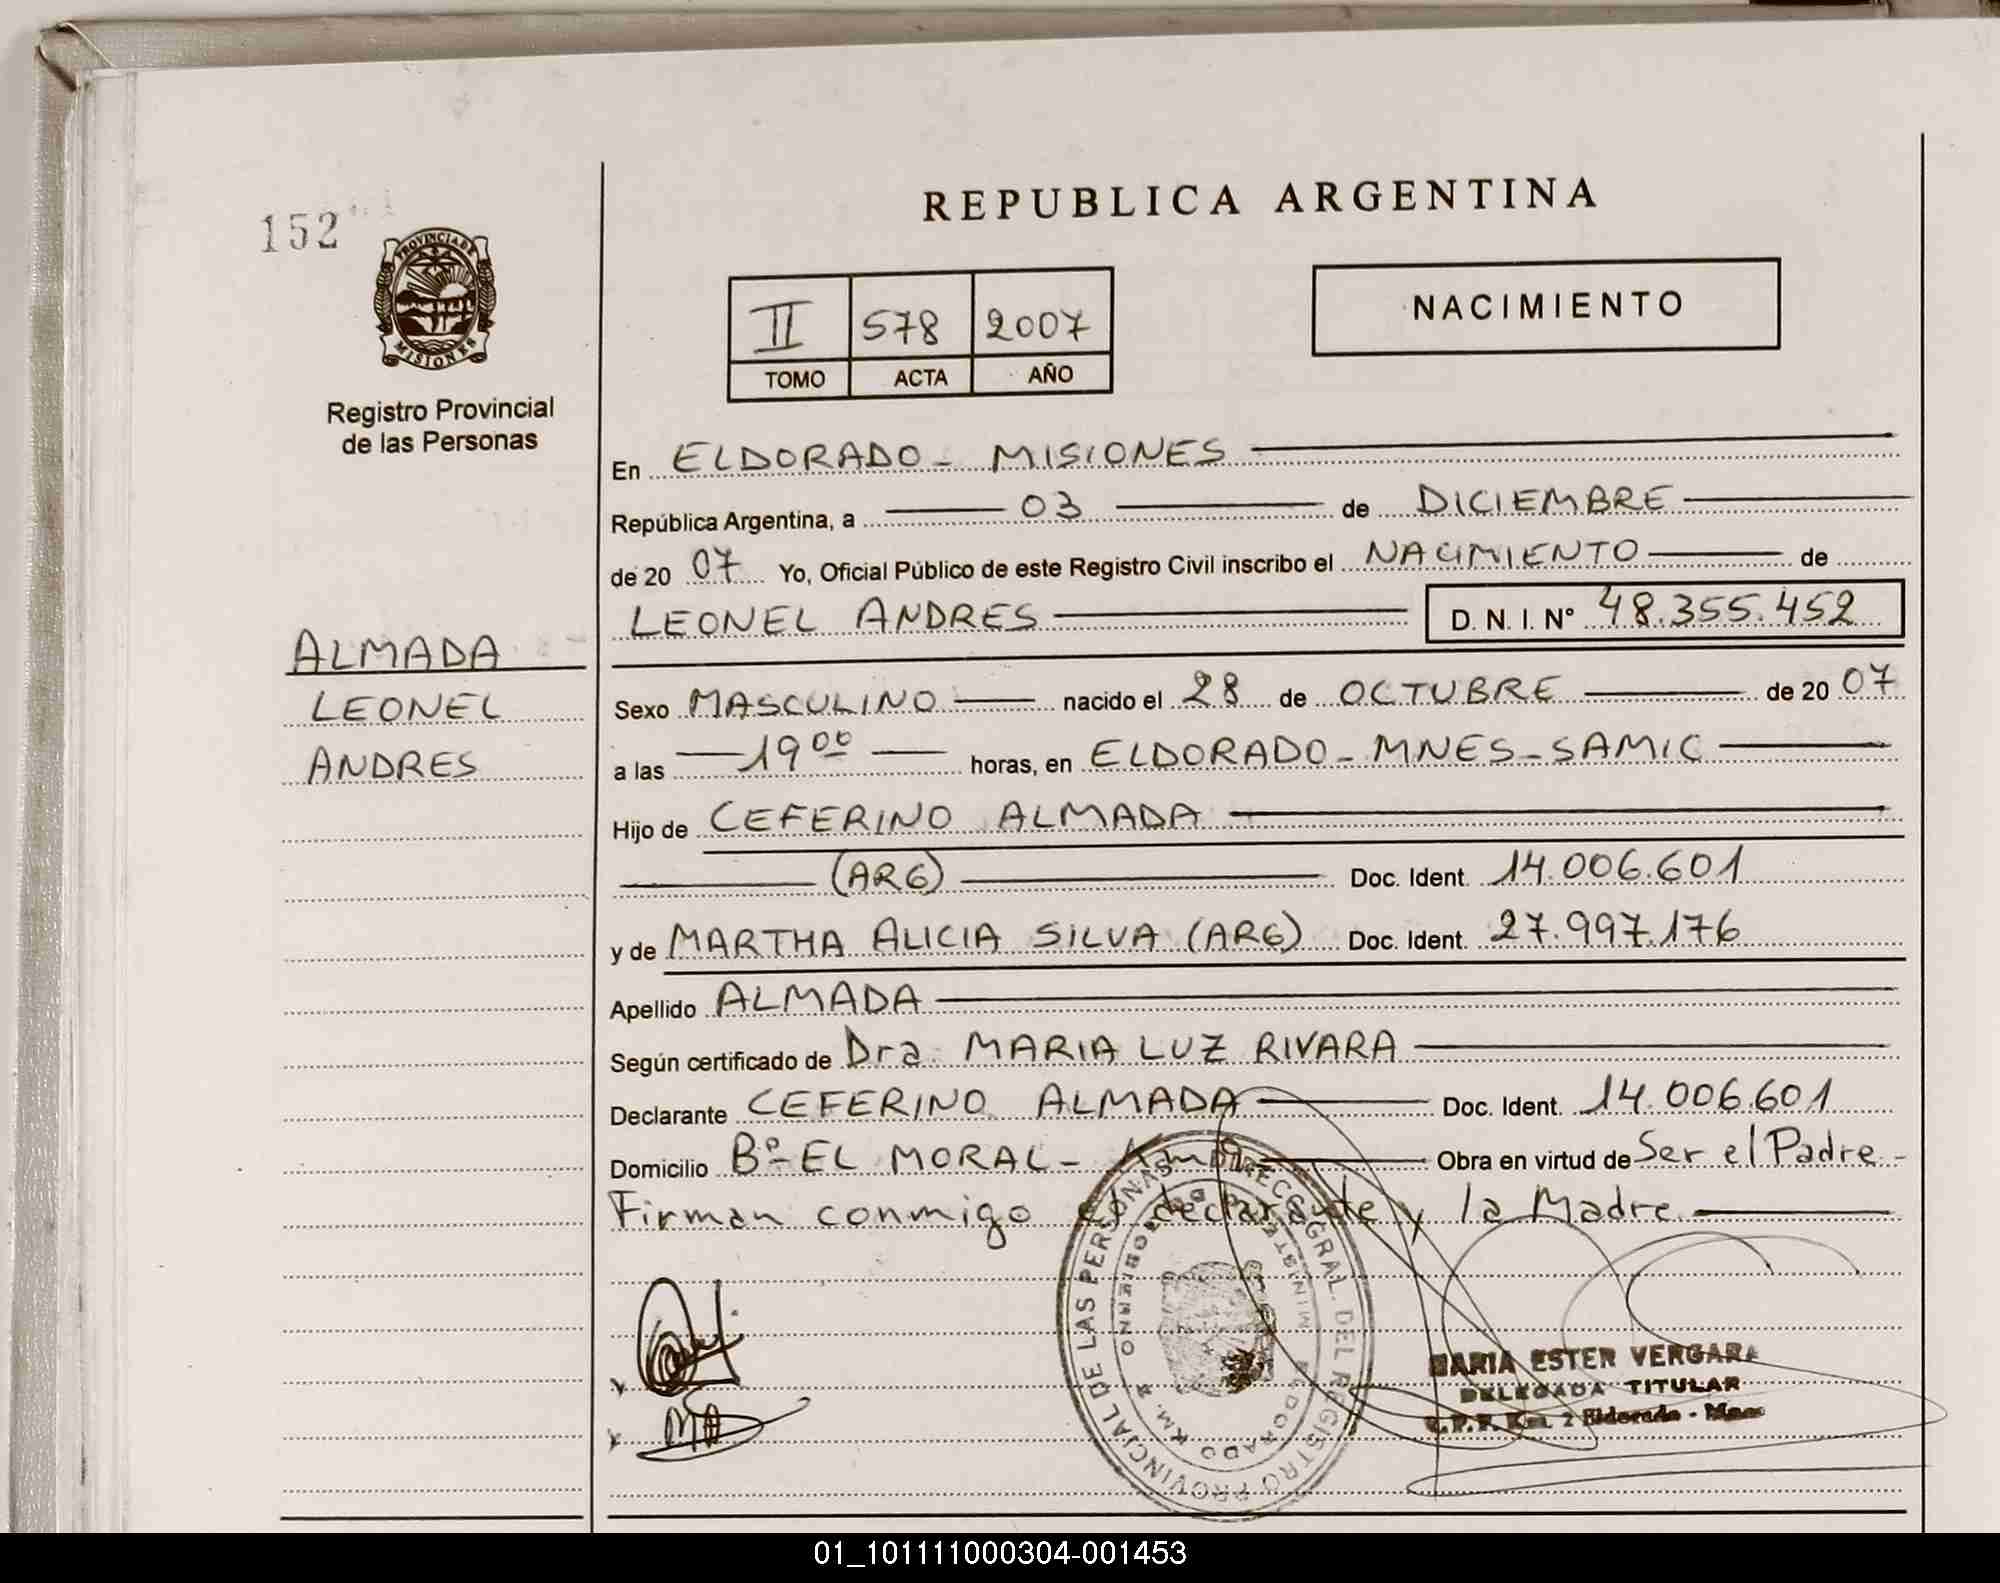 152
PROVINCIA DE
MISIONES
Registro Provincial
de las Personas
REPUBLICA ARGENTINA
II 578 2007
TOMO ACTA AÑO
NACIMIENTO
En ELDORADO - MISIONES
República Argentina, a 03 de DICIEMBRE
de 20 07 Yo, Oficial Público de este Registro Civil inscribo el NACIMIENTO de
LEONEL ANDRES D. N. I. N° 48.355.452
ALMADA
LEONEL
ANDRES
Sexo MASCULINO nacido el 28 de OCTUBRE de 20 07
a las 19 00 horas, en ELDORADO - MNES - SAMIC
Hijo de CEFERINO ALMADA
(ARG) Doc. Ident. 14.006.601
y de MARTHA ALICIA SILVA (ARG) Doc. Ident. 27.997.176
Apellido ALMADA
Según certificado de Dra. MARIA LUZ RIVARA
Declarante CEFERINO ALMADA Doc. Ident. 14.006.601
Domicilio Bº EL MORAL - Obra en virtud de Ser el Padre -
Firman conmigo el declarante y la Madre
DIREC. GRAL. DEL REGISTRO PROVINCIAL DE LAS PERSONAS
ELDORADO KM. 2
MARIA ESTER VERGARA
DELEGADA TITULAR
Km. 2 Eldorado - Mnes
01_101111000304-001453